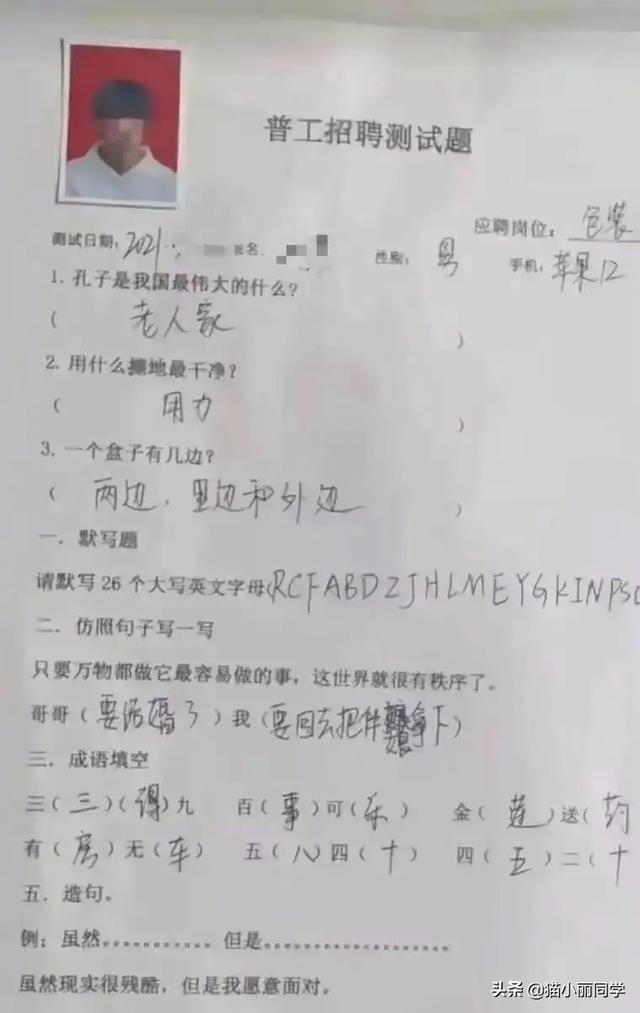 普工招聘测试题
应聘岗位：包装
测试日期：2021 姓名 性别：男 手机：苹果12
1. 孔子是我国最伟大的什么？
（老人家）
2. 用什么擦地最干净？
（用力）
3. 一个盒子有几边？
（两边，里边和外边）
一．默写题
请默写26个大写英文字母(RCFABDZJHLMEYGKINPSO
二．仿照句子写一写
只要万物都做它最容易做的事，这世界就很有秩序了。
哥哥（要结婚了）我（要回去把伴娘拿下）
三．成语填空
三（三）（得）九 百（事）可（乐） 金（莲）送（药
有（房）无（车） 五（八）四（十） 四（五）二（十
五．造句。
例：虽然………… 但是…………………
虽然现实很残酷，但是我愿意面对。
头条 @猫小丽同学